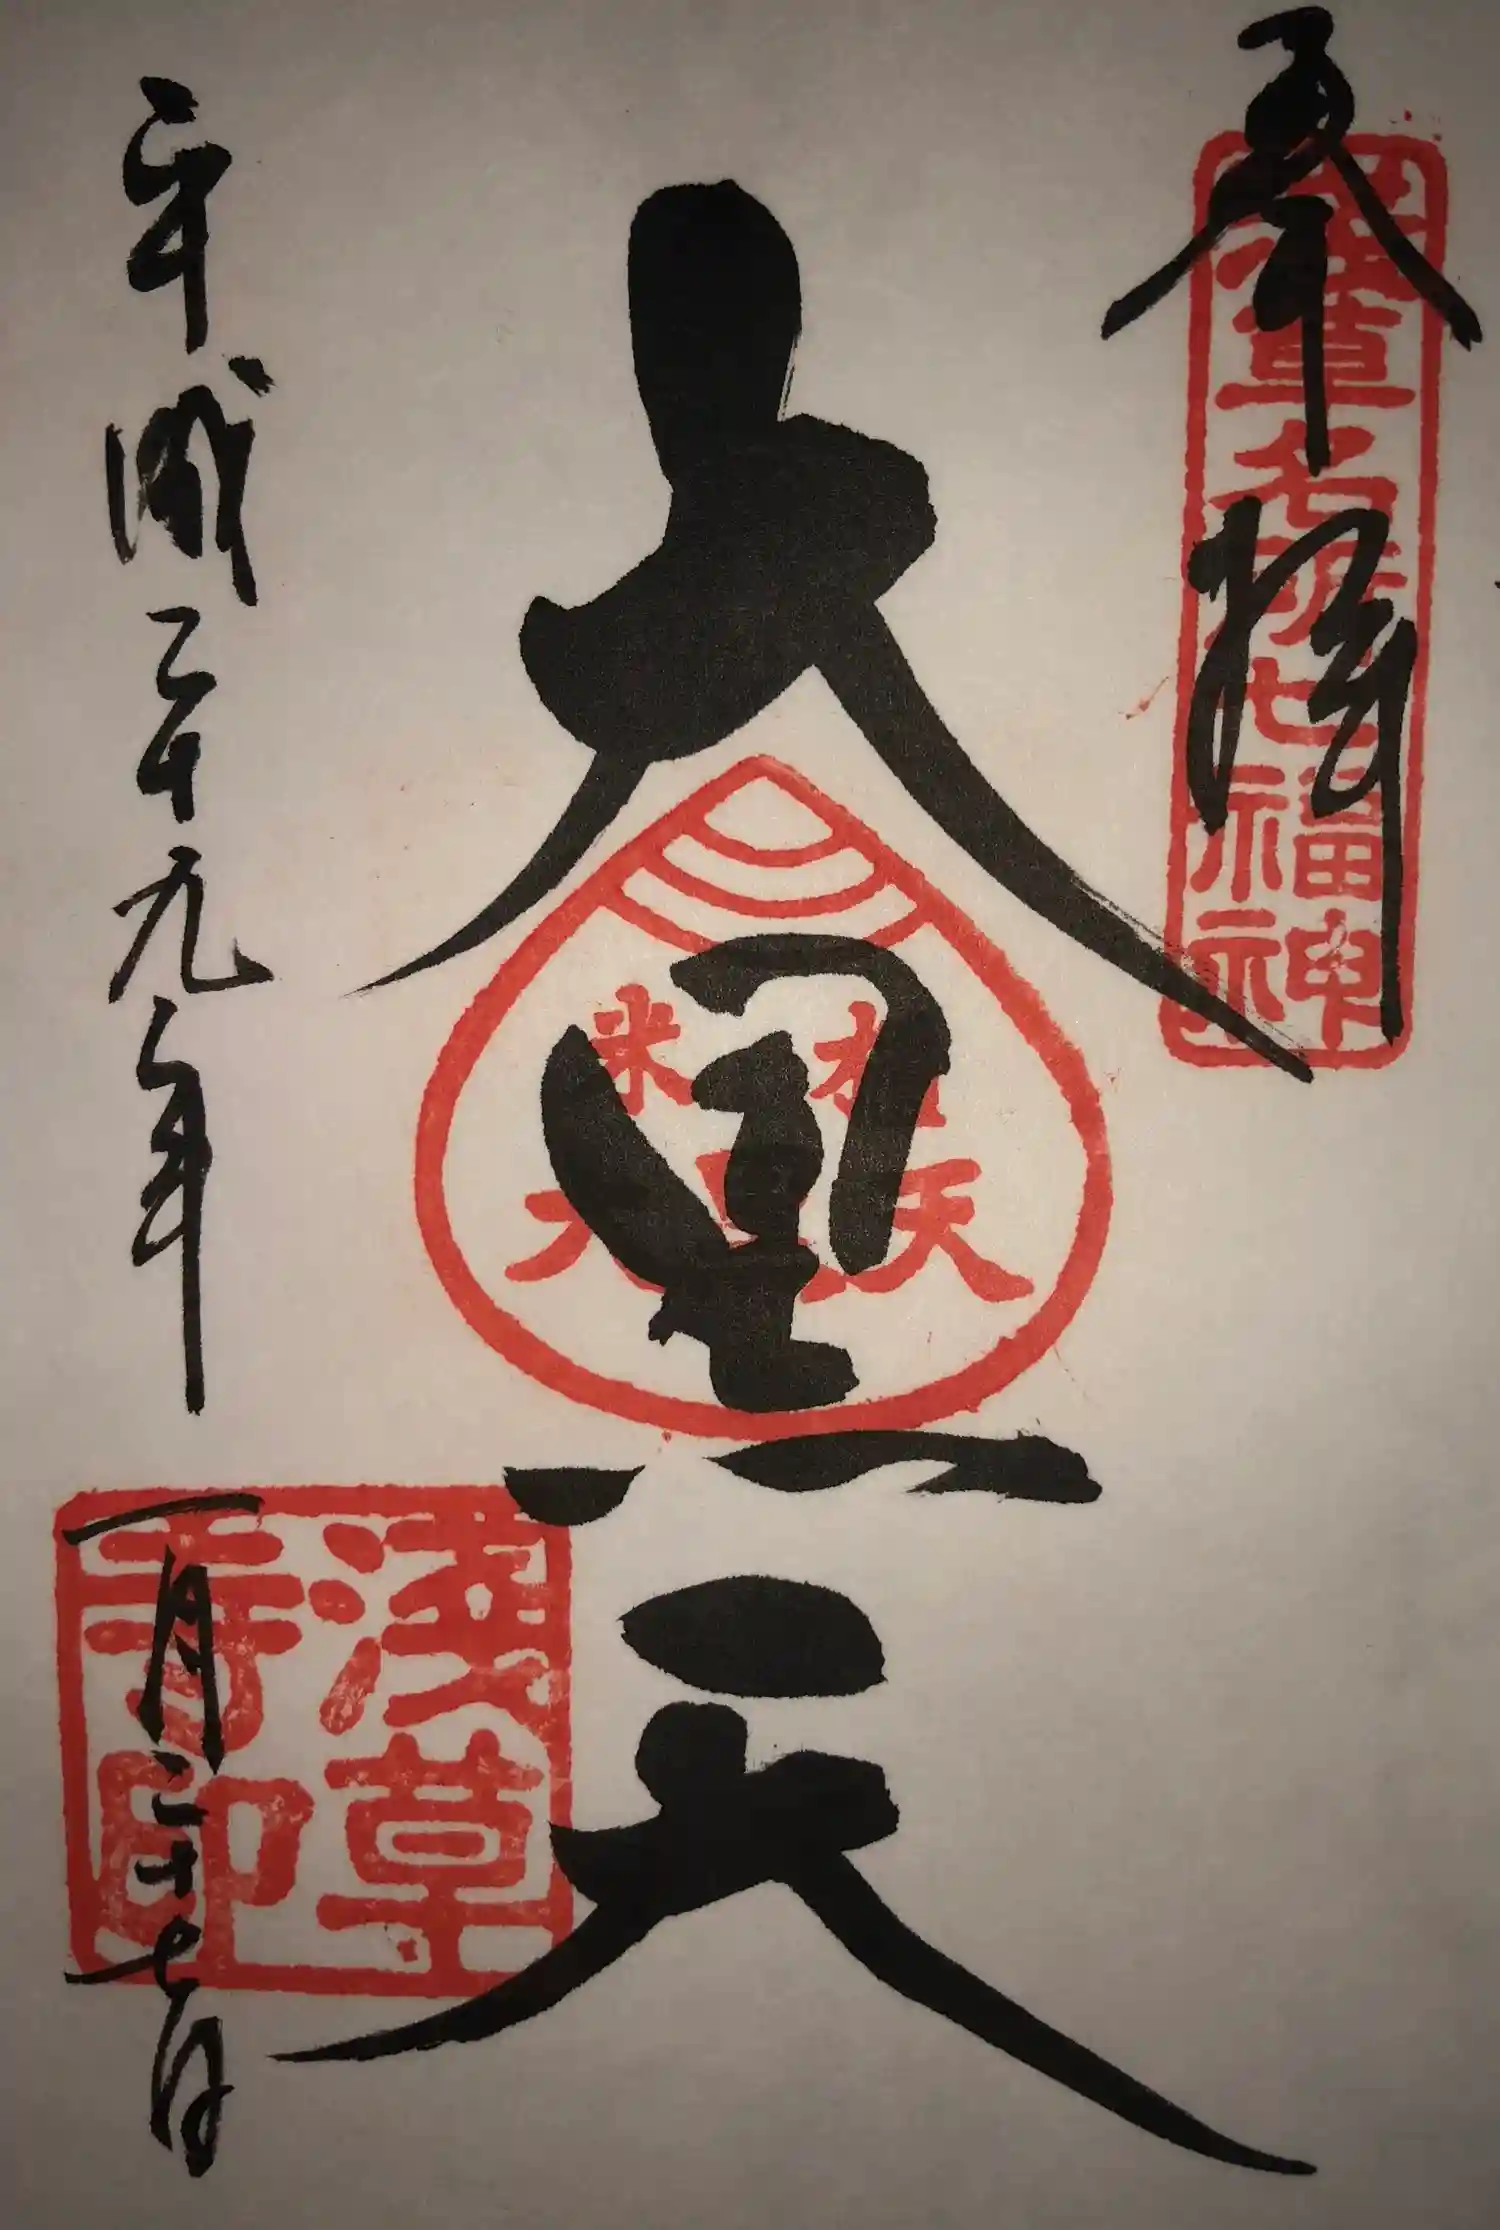 奉拝
浅草名所七福神
大黒天
米
大黒天
平成二十九年
一月二十七日
浅草
寺印